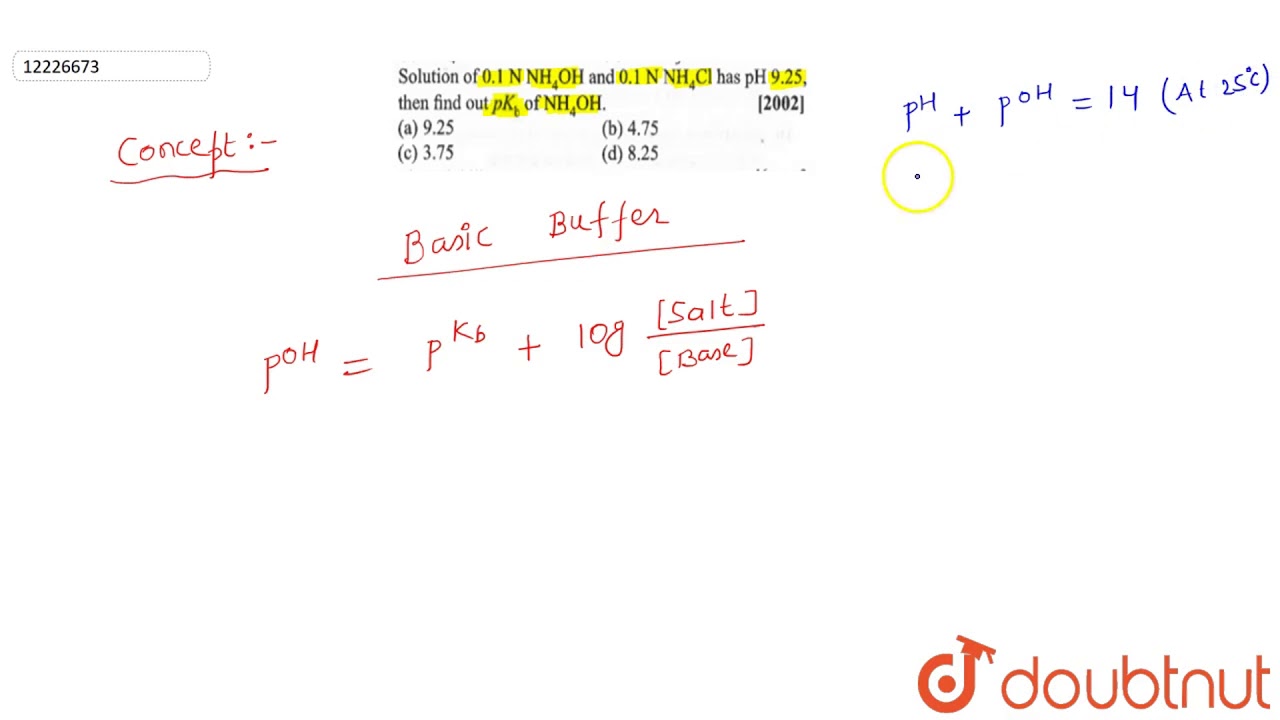 12226673
Solution of 0.1 N NH₄OH and 0.1 N NH₄Cl has pH 9.25,
then find out pK_b of NH₄OH. [2002]
(a) 9.25 (b) 4.75
(c) 3.75 (d) 8.25
pH + pOH = 14 (At 25°C)
Concept :-
Basic Buffer
pOH = pK_b + log [Salt]/[Base]
doubtnut